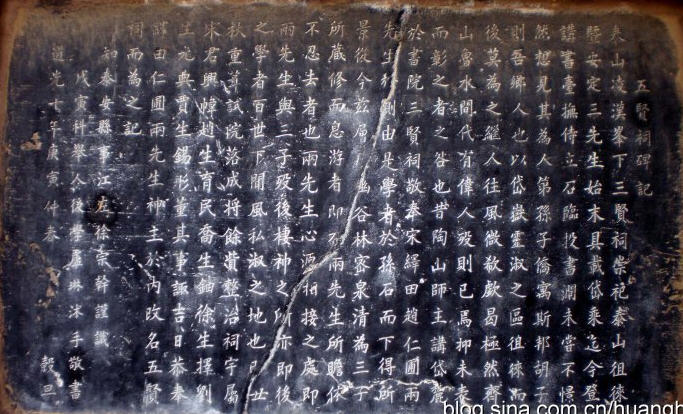 五賢祠碑記
泰山凌漢峯下三賢祠崇祀泰山徂徠
暨安定三先生始末具載岱乘迄今登
講書臺撫侍立石臨投書澗未嘗不憬
然想見其為人第孫子僑寓斯邦胡子
則吾鄉人也以岱嶽靈淑之區徂徠而
後莫為之繼人往風微欷歔曷極然齊
山魯水間代有偉人歿則已焉抑未表
而彰之者之咎也昔陶山師主講岱麓
於書院三賢祠敬奉宋繹田趙仁圃兩
先生則由是學者於孫石而下得所
景從今茲屬幽谷林密泉清為三子
所藏修而息游者即兩先生所瞻依
不忍去者也兩先生心源相接之處即
兩先生與三子歿後棲神之所亦即後
之學者百世下聞風私淑之地也
秋重葺試院落成將餘貲整治祠宇屬
宋君興幃趙生育民喬生鈾徐生擇劉
生允典賈生錫彤董其事諏吉日恭奉
繹田仁圃兩先生神主於內改名五賢
祠而為之記
知泰安縣事江左徐宗幹謹識
戊寅科舉人後學盧琳沐手敬書
道光十年庚寅仲春 穀旦
blog.sina.com.cn/huangb